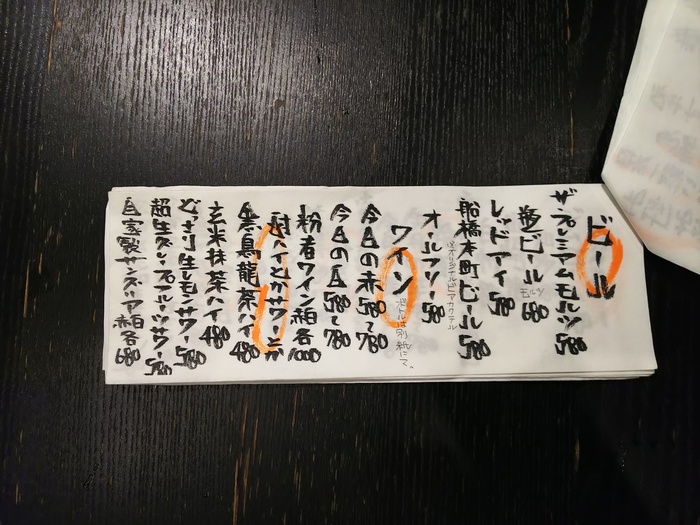 ビール
ザ・プレミアムモルツ 580
瓶ビール モルツ 680
レッドアイ 580
船橋本町ビール 580
※オリジナルビアカクテル
オールフリー 580
ワイン ボトルは別紙にて。
今日の赤 580〜780
今日の白 580〜780
粉者ワイン 紅白各1000
酎ハイとかサワーとか
黒烏龍茶ハイ 480
玄米抹茶ハイ 480
どっさり生レモンサワー 580
超生グレープフルーツサワー 580
自家製サングリア 赤白各680